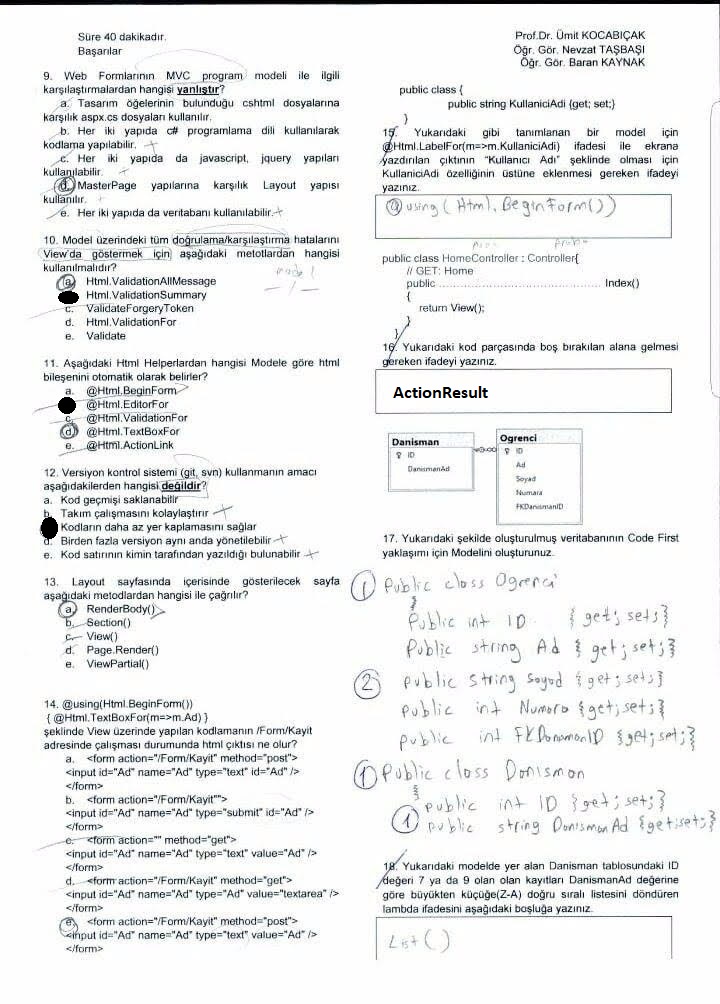 Süre 40 dakikadır.
Başarılar
Prof.Dr. Ümit KOCABIÇAK
Öğr. Gör. Nevzat TAŞBAŞI
Öğr. Gör. Baran KAYNAK
9. Web Formlarının MVC program modeli ile ilgili
karşılaştırmalardan hangisi yanlıştır?
a. Tasarım öğelerinin bulunduğu cshtml dosyalarına
karşılık aspx.cs dosyaları kullanılır.
b. Her iki yapıda c# programlama dili kullanılarak
kodlama yapılabilir.
c. Her iki yapıda da javascript, jquery yapıları
kullanılabilir.
d. MasterPage yapılarına karşılık Layout yapısı
kullanılır.
e. Her iki yapıda da veritabanı kullanılabilir.
10. Model üzerindeki tüm doğrulama/karşılaştırma hatalarını
View'da göstermek için aşağıdaki metotlardan hangisi
kullanılmalıdır?
model
a. Html.ValidationAllMessage
Html.ValidationSummary
c. ValidateForgeryToken
d. Html.ValidationFor
e. Validate
11. Aşağıdaki Html Helperlardan hangisi Modele göre html
bileşenini otomatik olarak belirler?
a. @Html.BeginForm
@Html.EditorFor
c. @Html.ValidationFor
d. @Html.TextBoxFor
e. @Html.ActionLink
12. Versiyon kontrol sistemi (git, svn) kullanmanın amacı
aşağıdakilerden hangisi değildir?
a. Kod geçmişi saklanabilir
b. Takım çalışmasını kolaylaştırır
Kodların daha az yer kaplamasını sağlar
d. Birden fazla versiyon aynı anda yönetilebilir
e. Kod satırının kimin tarafından yazıldığı bulunabilir
13. Layout sayfasında içerisinde gösterilecek sayfa
aşağıdaki metodlardan hangisi ile çağrılır?
a. RenderBody()
b. Section()
c. View()
d. Page.Render()
e. ViewPartial()
14. @using(Html.BeginForm())
{ @Html.TextBoxFor(m=>m.Ad) }
şeklinde View üzerinde yapılan kodlamanın /Form/Kayit
adresinde çalışması durumunda html çıktısı ne olur?
a. <form action="/Form/Kayit" method="post">
<input id="Ad" name="Ad" type="text" id="Ad" />
</form>
b. <form action="/Form/Kayit"">
<input id="Ad" name="Ad" type="submit" id="Ad" />
</form>
c. <form action="" method="get">
<input id="Ad" name="Ad" type="text" value="Ad" />
</form>
d. <form action="/Form/Kayit" method="get">
<input id="Ad" name="Ad" type="Ad" value="textarea" />
</form>
e. <form action="/Form/Kayit" method="post">
<input id="Ad" name="Ad" type="text" value="Ad" />
</form>
public class {
public string KullaniciAdi {get; set;}
}
15. Yukarıdaki gibi tanımlanan bir model için
@Html.LabelFor(m=>m.KullaniciAdi) ifadesi ile ekrana
yazdırılan çıktının "Kullanıcı Adı" şeklinde olması için
KullaniciAdi özelliğinin üstüne eklenmesi gereken ifadeyi
yazınız.
@using(Html.BeginForm())
public class HomeController : Controller{
// GET: Home
public ........................................ Index()
{
return View();
}
}
16. Yukarıdaki kod parçasında boş bırakılan alana gelmesi
gereken ifadeyi yazınız.
ActionResult
Danisman
ID
DanismanAd
Ogrenci
ID
Ad
Soyad
Numara
FKDanismanID
17. Yukarıdaki şekilde oluşturulmuş veritabanının Code First
yaklaşımı için Modelini oluşturunuz.
1 Public class Ogrenci
{
Public int ID { get; set;}
Public string Ad { get; set;}
2 Public String Soyad { get; set;}
Public int Numara {get; set;}
Public int FKDanısmanID {get; set;}
1 Public class Danısman
{
Public int ID {get; set;}
1 Public string DanısmanAd {get;set;}
18. Yukarıdaki modelde yer alan Danisman tablosundaki ID
değeri 7 ya da 9 olan olan kayıtları DanismanAd değerine
göre büyükten küçüğe(Z-A) doğru sıralı listesini döndüren
lambda ifadesini aşağıdaki boşluğa yazınız.
List()